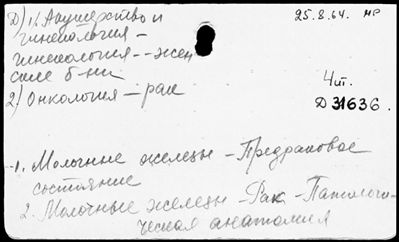 Д) 1. Акушерство и 25.8.64. нр
гинекология –
гинекология -- жен
ские б-ни
4 шт.
2) Онкология – рак
Д 31636.
1. Молочные железы – Предраковое
состояние
2. Молочные железы – Рак – Патологи-
ческая анатомия